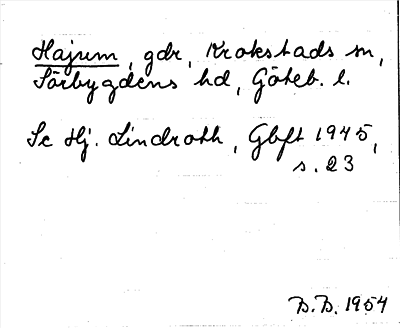 Hajum, gdr, Krokstads sn,
Sörbygdens hd, Göteb. l.
Se Hj. Lindroth, Gbft 1945,
s. 23
B.B. 1954